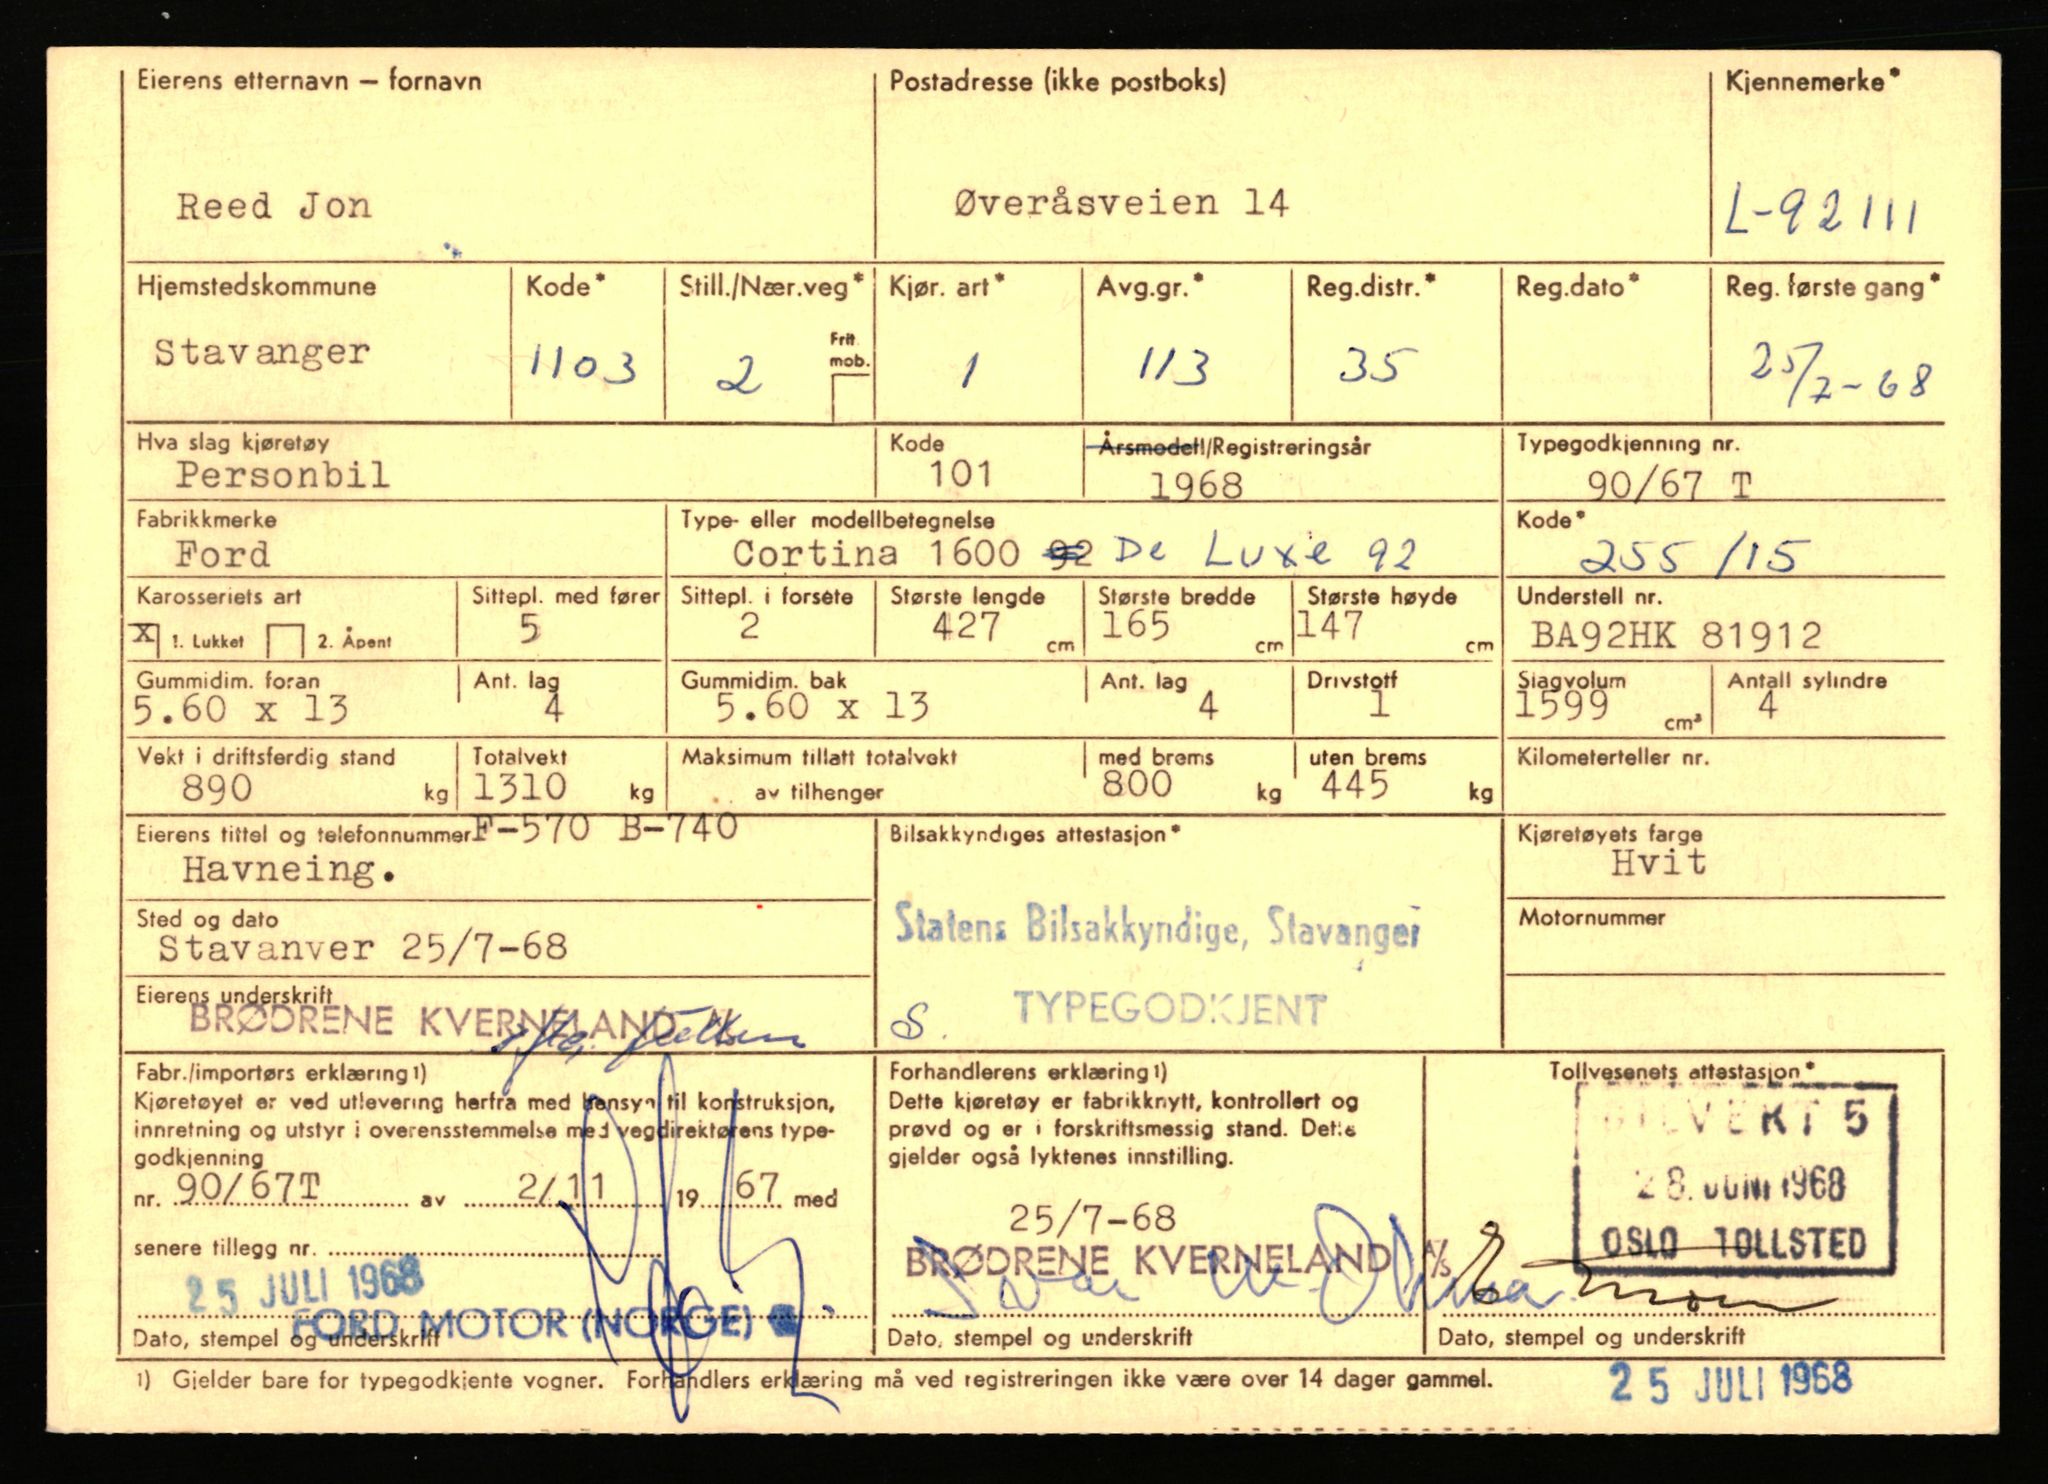 Eierens etternavn – fornavn Postadresse (ikke postboks) Kjennemerke*
Reed Jon Øveråsveien 14 L-92111
Hjemstedskommune Kode* Still./Nær.veg* Kjør. art* Avg.gr.* Reg.distr.* Reg.dato* Reg. første gang*
Frit. mob.
Stavanger 1103 2 1 113 35 25/7-68
Hva slag kjøretøy Kode Årsmodell/Registreringsår Typegodkjenning nr.
Personbil 101 1968 90/67 T
Fabrikkmerke Type- eller modellbetegnelse Kode*
Ford Cortina 1600 92 De Luxe 92 255/15
Karosseriets art Sittepl. med fører Sittepl. i forsete Største lengde Største bredde Største høyde Understell nr.
x 1. Lukket 2. Åpent 5 2 427 cm 165 cm 147 cm BA92HK 81912
Gummidim. foran Ant. lag Gummidim. bak Ant. lag Drivstoff Slagvolum Antall sylindre
5.60 x 13 4 5.60 x 13 4 1 1599 cm³ 4
Vekt i driftsferdig stand Totalvekt Maksimum tillatt totalvekt med brems uten brems Kilometerteller nr.
890 kg 1310 kg av tilhenger 800 kg 445 kg
Eierens tittel og telefonnummer F-570 B-740 Bilsakkyndiges attestasjon* Kjøretøyets farge
Havneing. Hvit
Sted og dato Statens Bilsakkyndige, Stavanger Motornummer
Stavanver 25/7-68
Eierens underskrift
BRØDRENE KVERNELAND A/S S. TYPEGODKJENT
Fabr./importørs erklæring 1) Forhandlerens erklæring 1) Tollvesenets attestasjon*
Kjøretøyet er ved utlevering herfra med hensyn til konstruksjon,
innretning og utstyr i overensstemmelse med vegdirektørens type-
godkjenning
nr. 90/67T av 2/11 19 67 med
senere tillegg nr.
25 JULI 1968
FORD MOTOR (NORGE)
Dato, stempel og underskrift
Dette kjøretøy er fabrikknytt, kontrollert og
prøvd og er i forskriftsmessig stand. Dette
gjelder også lyktenes innstilling.
25/7-68
BRØDRENE KVERNELAND A/S
Dato, stempel og underskrift
5
28. JUNI 1968
OSLO TOLLSTED
Dato, stempel og underskrift
1) Gjelder bare for typegodkjente vogner. Forhandlers erklæring må ved registreringen ikke være over 14 dager gammel.
25 JULI 1968